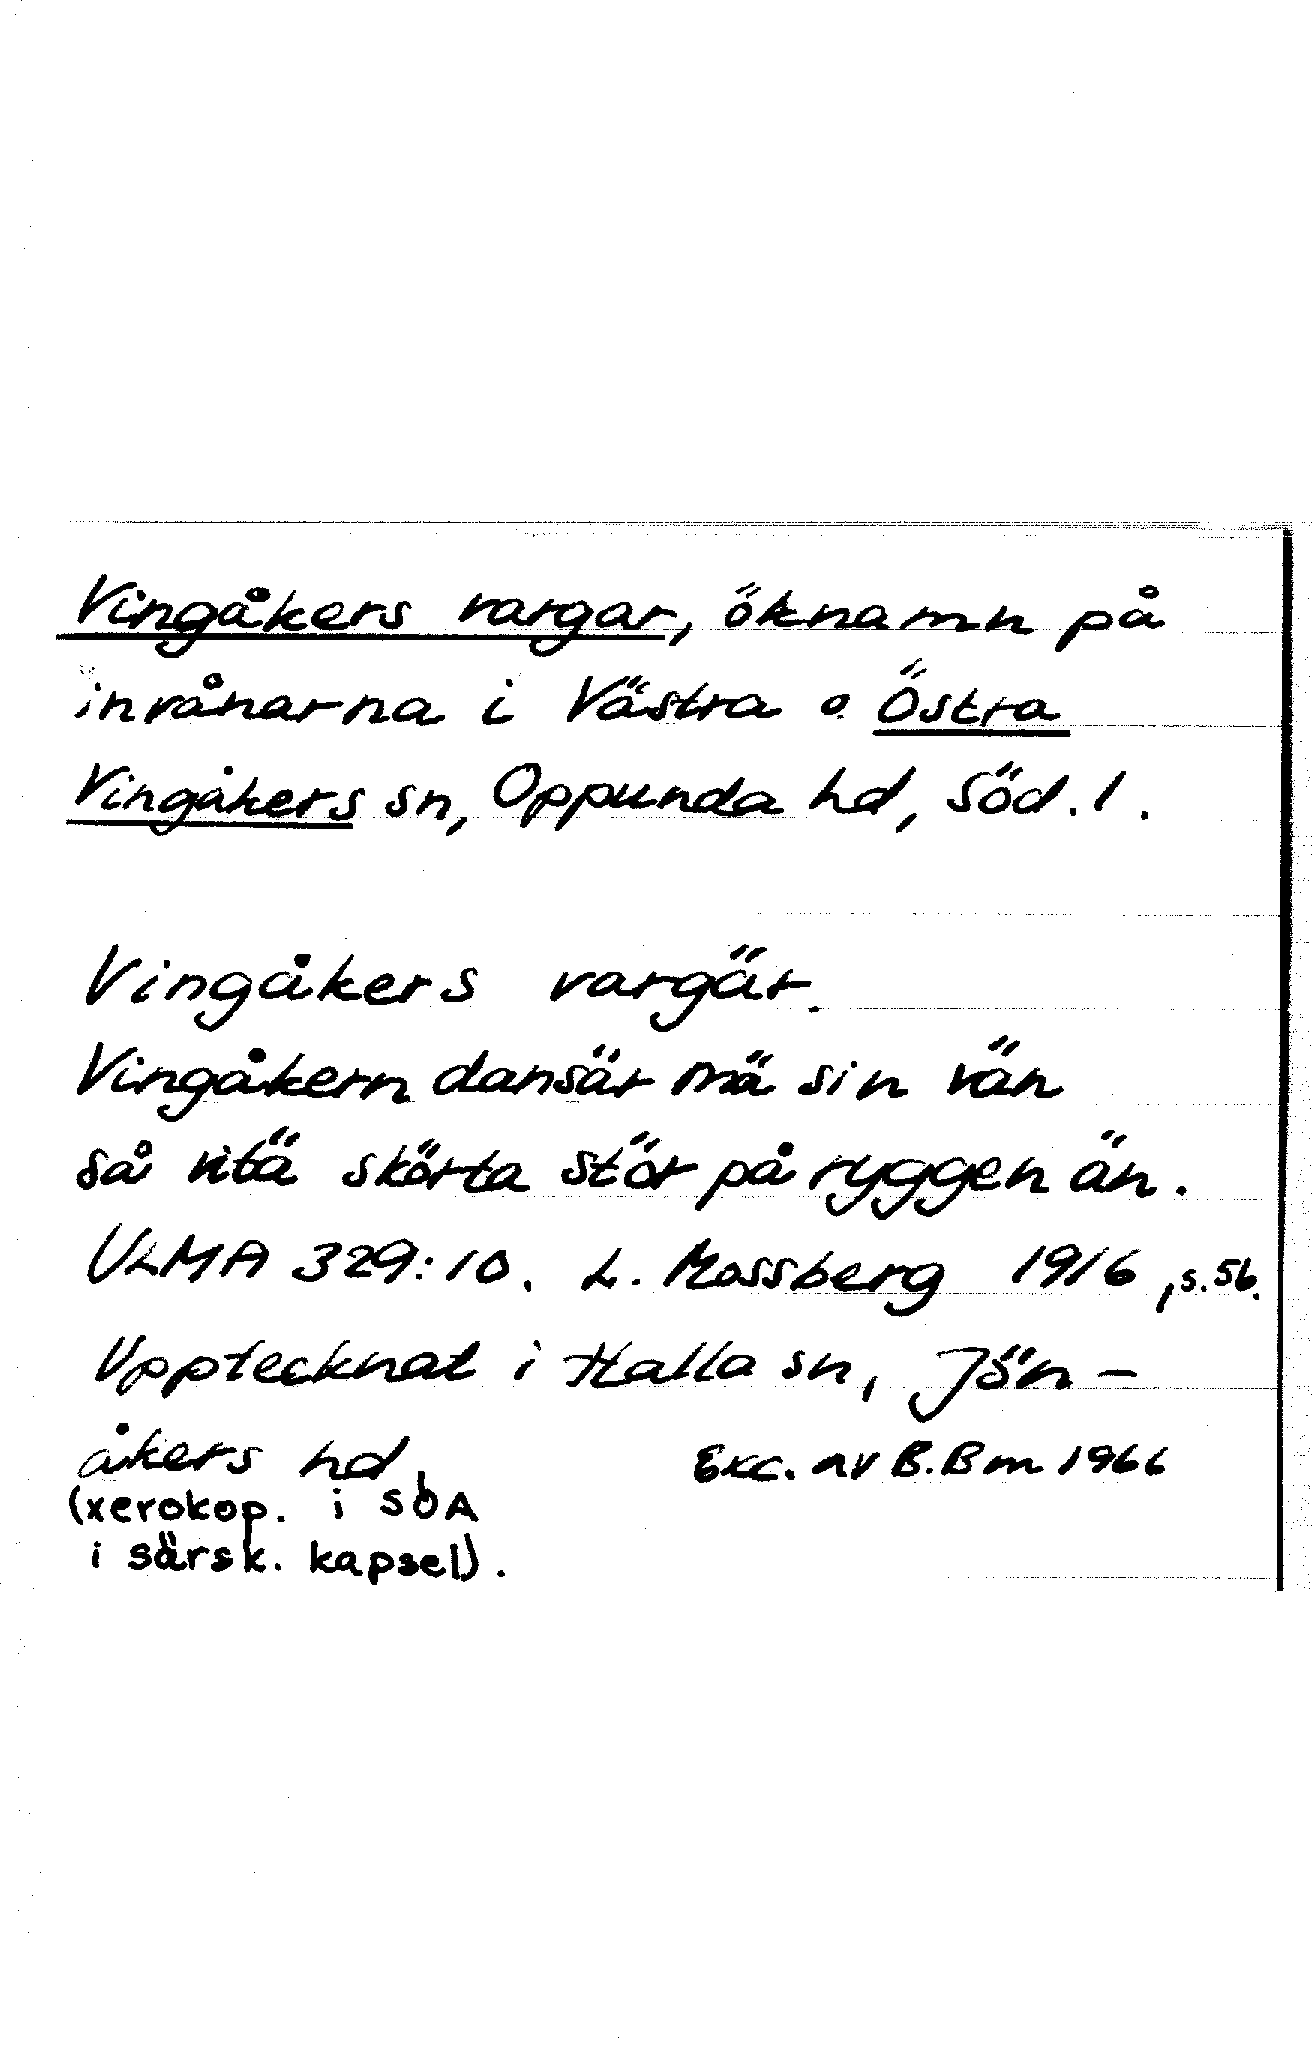 Vingåkers vargar, öknamn på
invånarna i Västra o. Östra
Vingåkers sn, Oppunda hd, Söd. l.
Vingåkers vargär.
Vingåkern dansär mä sin vän
så vitä skörta stör på ryggen än.
ULMA 329:10. L. Mossberg 1916, s. 56.
Upptecknat i Halla sn, Jön-
åkers hd.
Exc. av B. Bm 1966
(xerokop. i SOA
i särsk. kapsel).